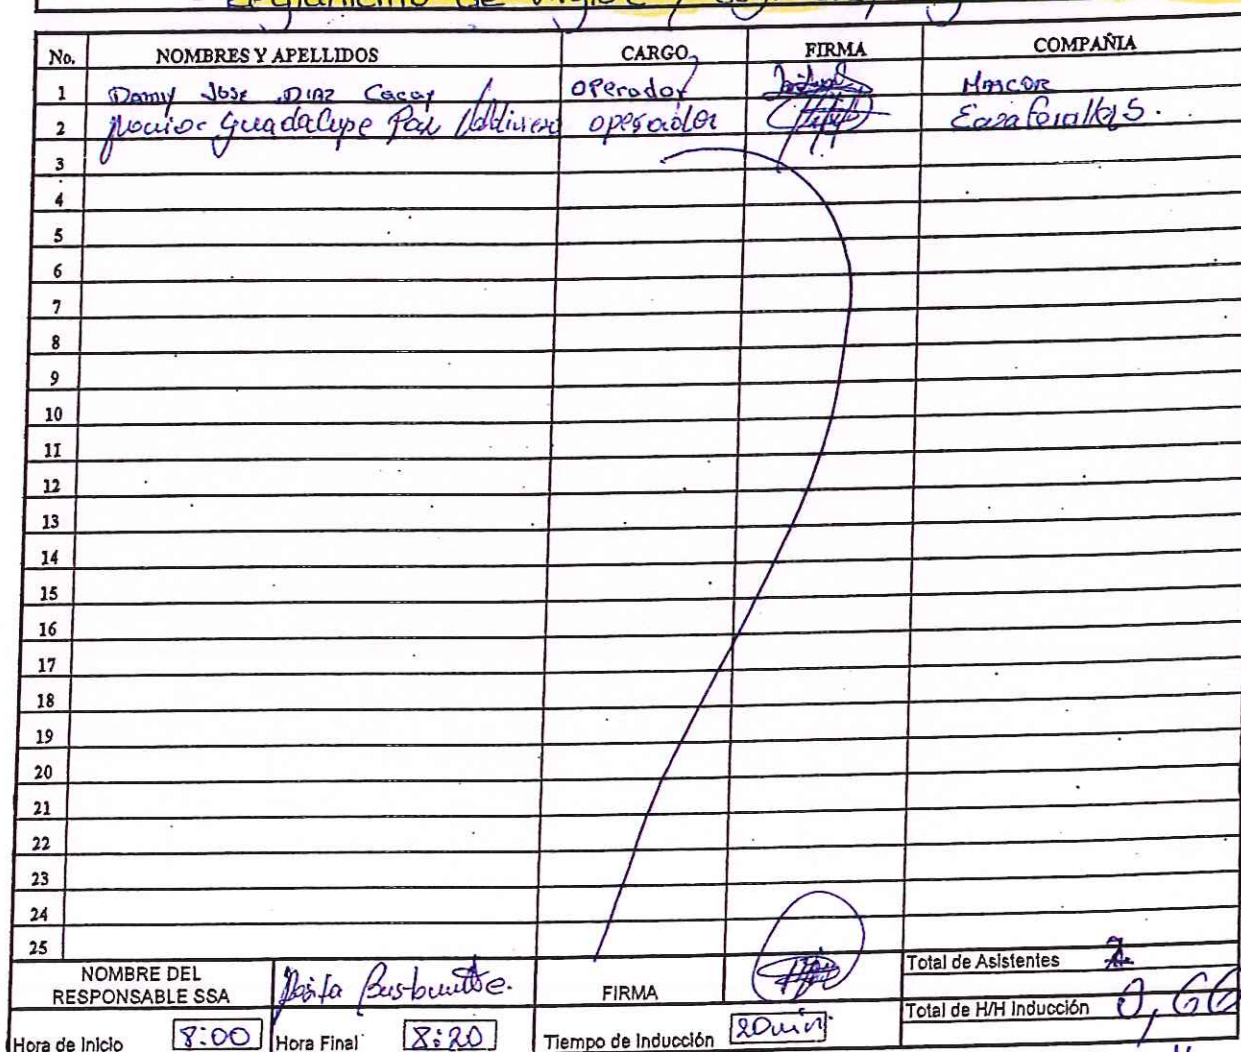 de
No. NOMBRES Y APELLIDOS CARGO FIRMA COMPAÑIA
1 Damy Jose DIAZ operador Mascor
2 Guadalupe operador
3
4
5
6
7
8
9
10
11
12
13
14
15
16
17
18
19
20
21
22
23
24
25
NOMBRE DEL RESPONSABLE SSA FIRMA Total de Asistentes 2
Total de H/H Inducción 0,66
Hora de Inicio 8:00 Hora Final 8:20 Tiempo de Inducción 20min